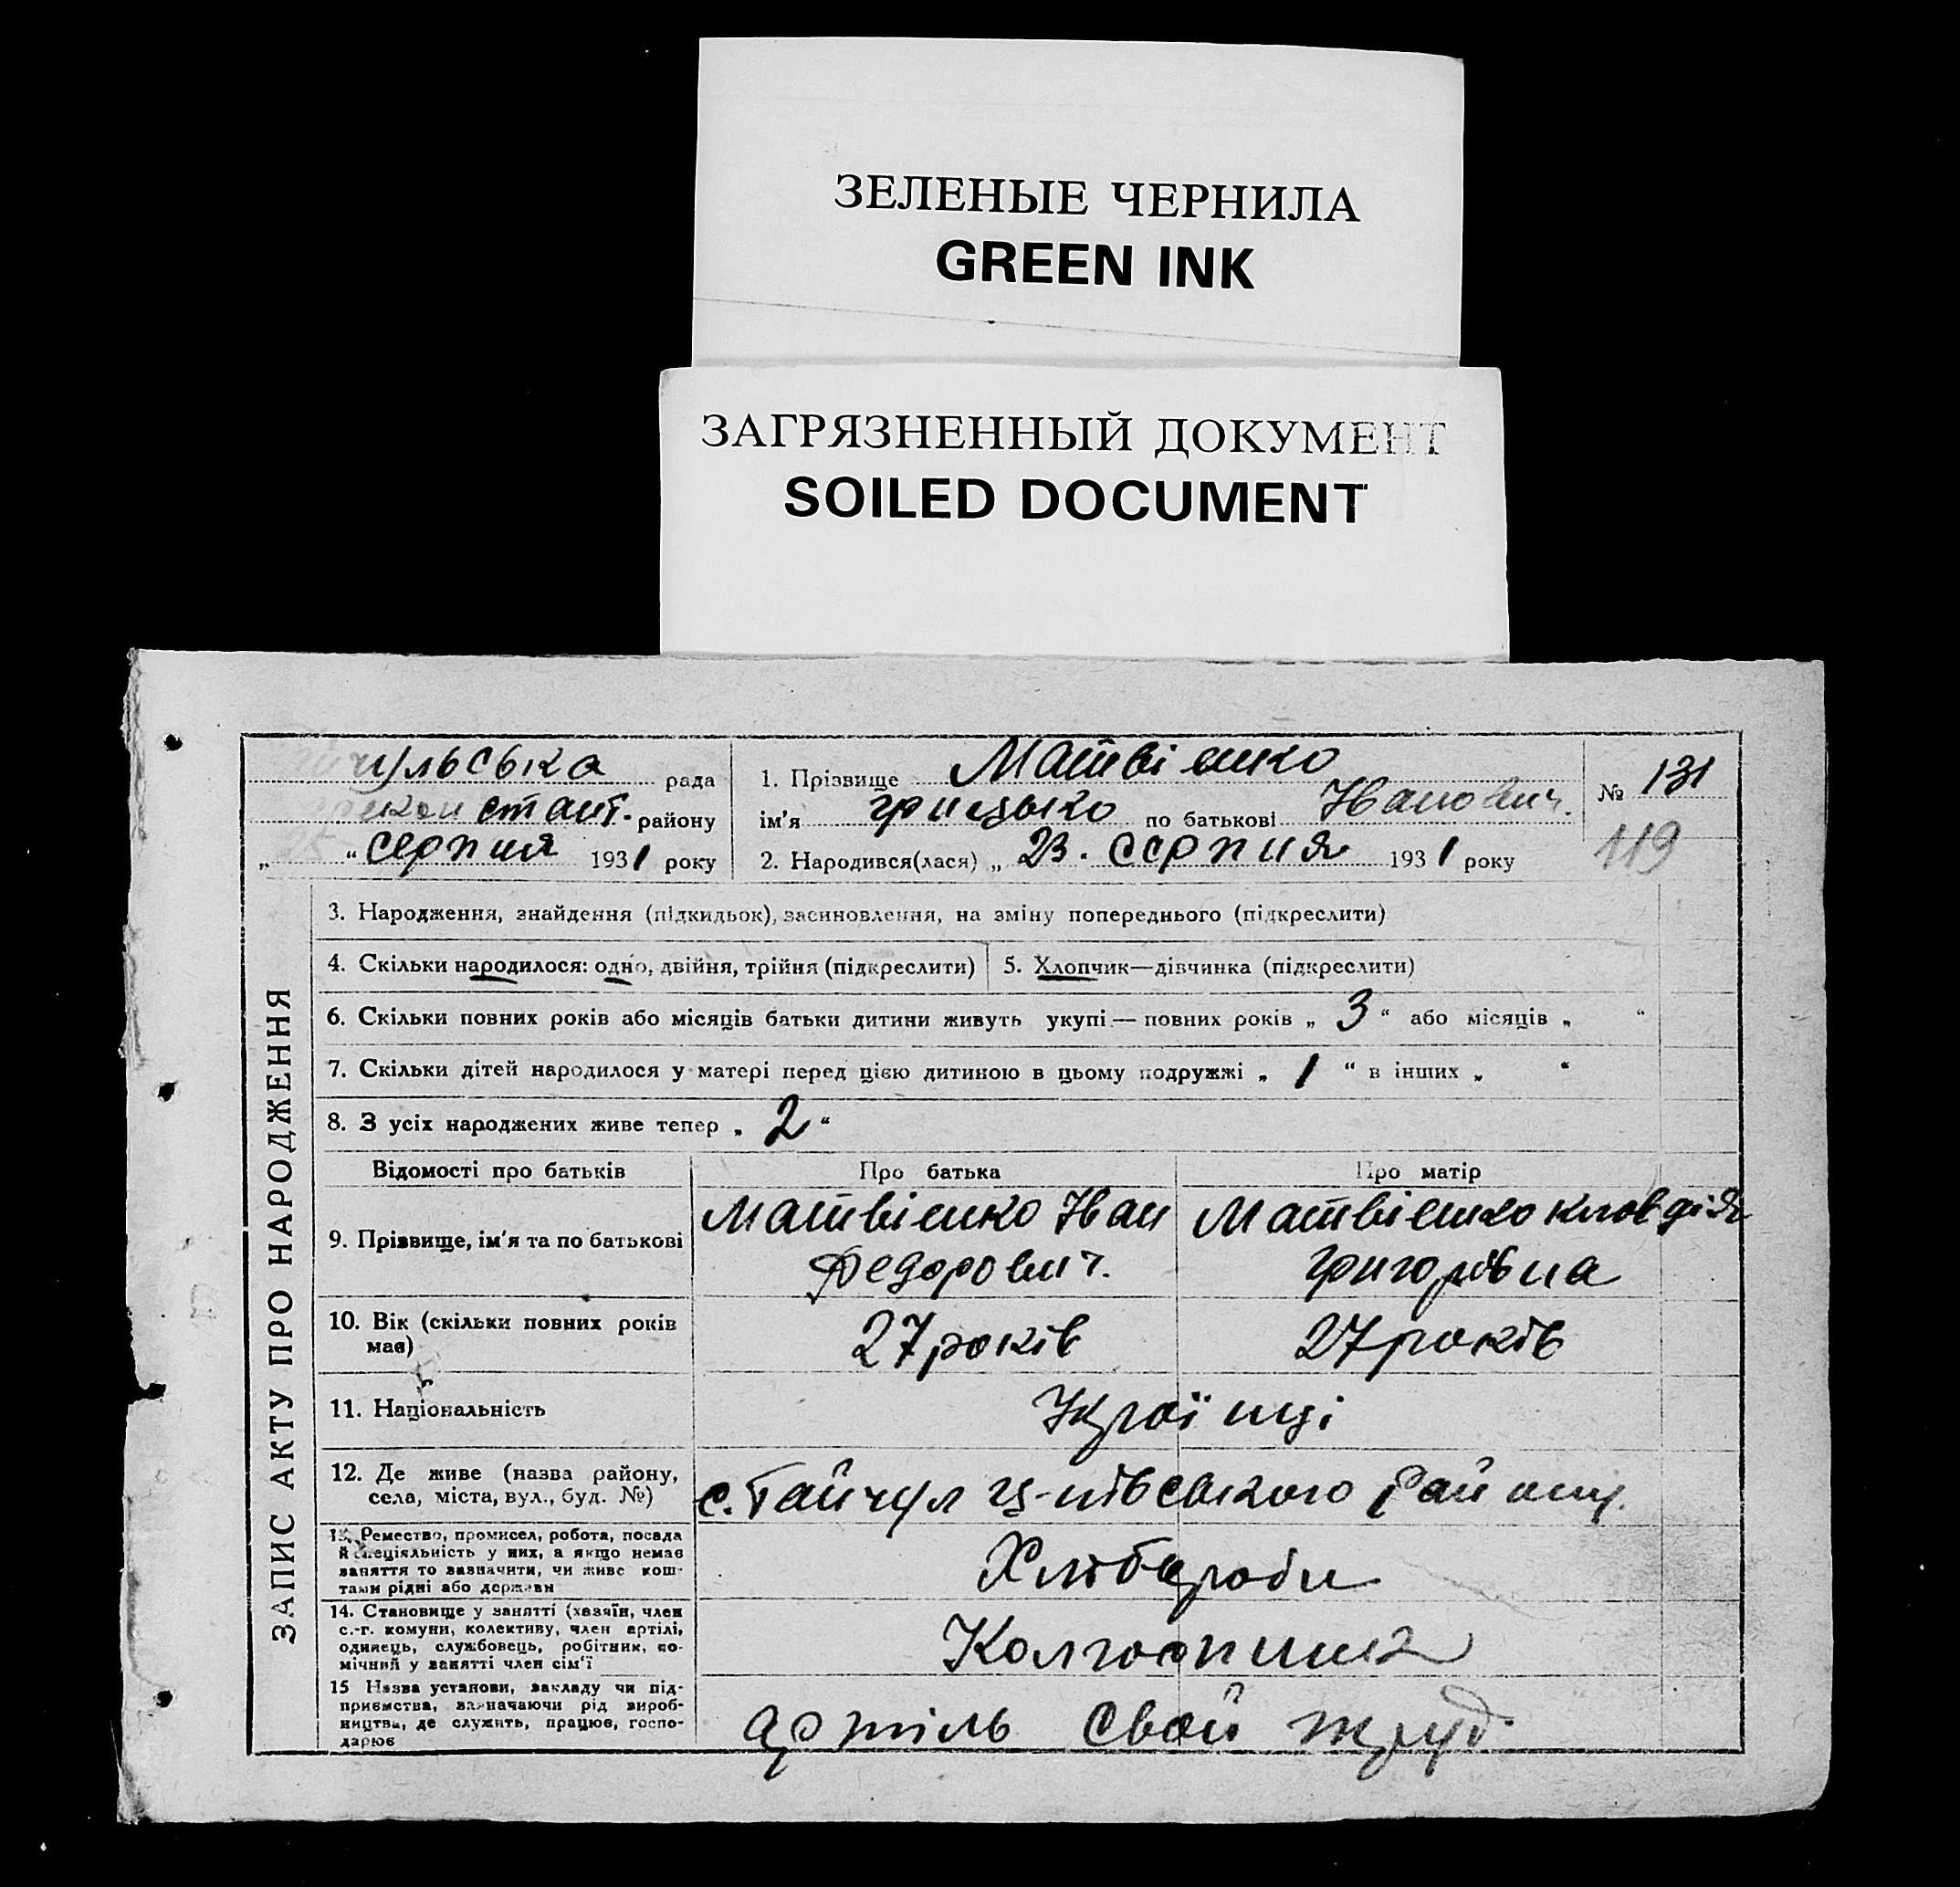 ЗЕЛЕНЫЕ ЧЕРНИЛА
GREEN INK
ЗАГРЯЗНЕННЫЙ ДОКУМЕНТ
SOILED DOCUMENT
чульська рада
констант. району
„25“ серпня 1931 року
1. Прізвище Матвієнко
ім'я Грицько по батькові Іванович.
2. Народився(лася) „23. серпня 1931 року
№ 131
119
ЗАПИС АКТУ ПРО НАРОДЖЕННЯ
3. Народження, знайдення (підкидьок), засиновлення, на зміну попереднього (підкреслити)
4. Скільки народилося: одно, двійня, трійня (підкреслити)
5. Хлопчик—дівчинка (підкреслити)
6. Скільки повних років або місяців батьки дитини живуть укупі — повних років „ 3 “ або місяців „ “
7. Скільки дітей народилося у матері перед цією дитиною в цьому подружжі „ 1 “ в інших „ “
8. З усіх народжених живе тепер „ 2 “
Відомості про батьків Про батька Про матір
9. Прізвище, ім'я та по батькові
Матвієнко Іван
Федорович.
Матвієнко Клавдія
Григорівна
10. Вік (скільки повних років
має)
27 років
27 років
11. Національність
Українці
12. Де живе (назва району,
села, міста, вул., буд. №)
с. Гайчул Ц-нівського району.
13. Ремество, промисел, робота, посада
й спеціяльність у них, а якщо немає
заняття то зазначити, чи живе кош-
тами рідні або держави
Хлібороби
14. Становище у занятті (хазяїн, член
с.-г. комуни, колективу, член артілі,
одинець, службовець, робітник, по-
мічний у занятті член сім'ї
Колгоспник
15 Назва установи, закладу чи під-
приємства, зазначаючи рід вироб-
ництва, де служить, працює, госпо-
дарює
артіль свой труд.